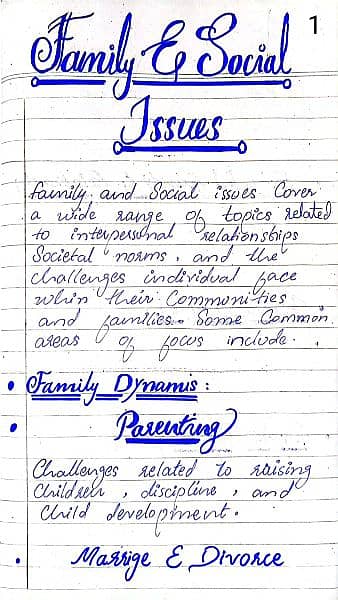 1
Family & Social
Issues
family and Social issues Cover
a wide range of topics related
to interpersonal relationships
Societal norms, and the
challenges individual face
whin their Communities
and families. Some Common
areas of focus include.
• Family Dynamis :
• Parenting
Challenges related to raising
Children, discipline, and
Child development.
• Marrige & Divorce